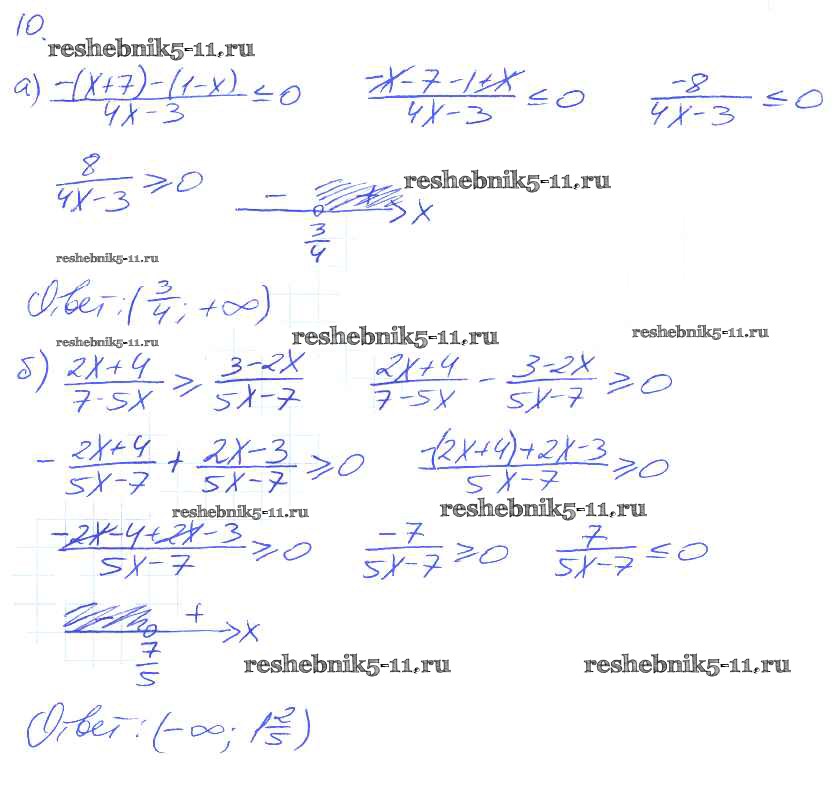 10.
reshebnik5-11.ru
а) (-(x+7)-(1-x))/(4x-3) ≤ 0   (-x-7-1+x)/(4x-3) ≤ 0   (-8)/(4x-3) ≤ 0
8/(4x-3) ≥ 0   - + x
reshebnik5-11.ru
3/4
reshebnik5-11.ru
Ответ: (3/4; +∞)
reshebnik5-11.ru
reshebnik5-11.ru
reshebnik5-11.ru
б) (2x+4)/(7-5x) ≥ (3-2x)/(5x-7)   (2x+4)/(7-5x) - (3-2x)/(5x-7) ≥ 0
- (2x+4)/(5x-7) + (2x-3)/(5x-7) ≥ 0   (-(2x+4)+2x-3)/(5x-7) ≥ 0
reshebnik5-11.ru
reshebnik5-11.ru
(-2x-4+2x-3)/(5x-7) ≥ 0   (-7)/(5x-7) ≥ 0   7/(5x-7) ≤ 0
- + x
7/5
reshebnik5-11.ru
reshebnik5-11.ru
Ответ: (-∞; 1 2/5)